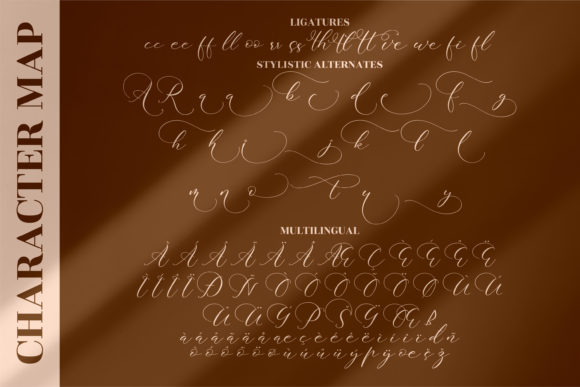 CHARACTER MAP
LIGATURES
cc ee ff ll oo th tl tt ve we fi fl
STYLISTIC ALTERNATES
A R a a b c d e f g
h h i j k l
m n o t u y
MULTILINGUAL
À Á Â Ã Ä Å Æ Ç È É Ê Ë
Ì Í Î Ï Ð Ñ Ò Ó Ô Õ Ö Ø Ù Ú
Û Ü Œ
à á â ã ä å æ ç è é ê ë ì í î ï ñ
ò ó ô õ ö ø ù ú û ü ý þ ÿ œ